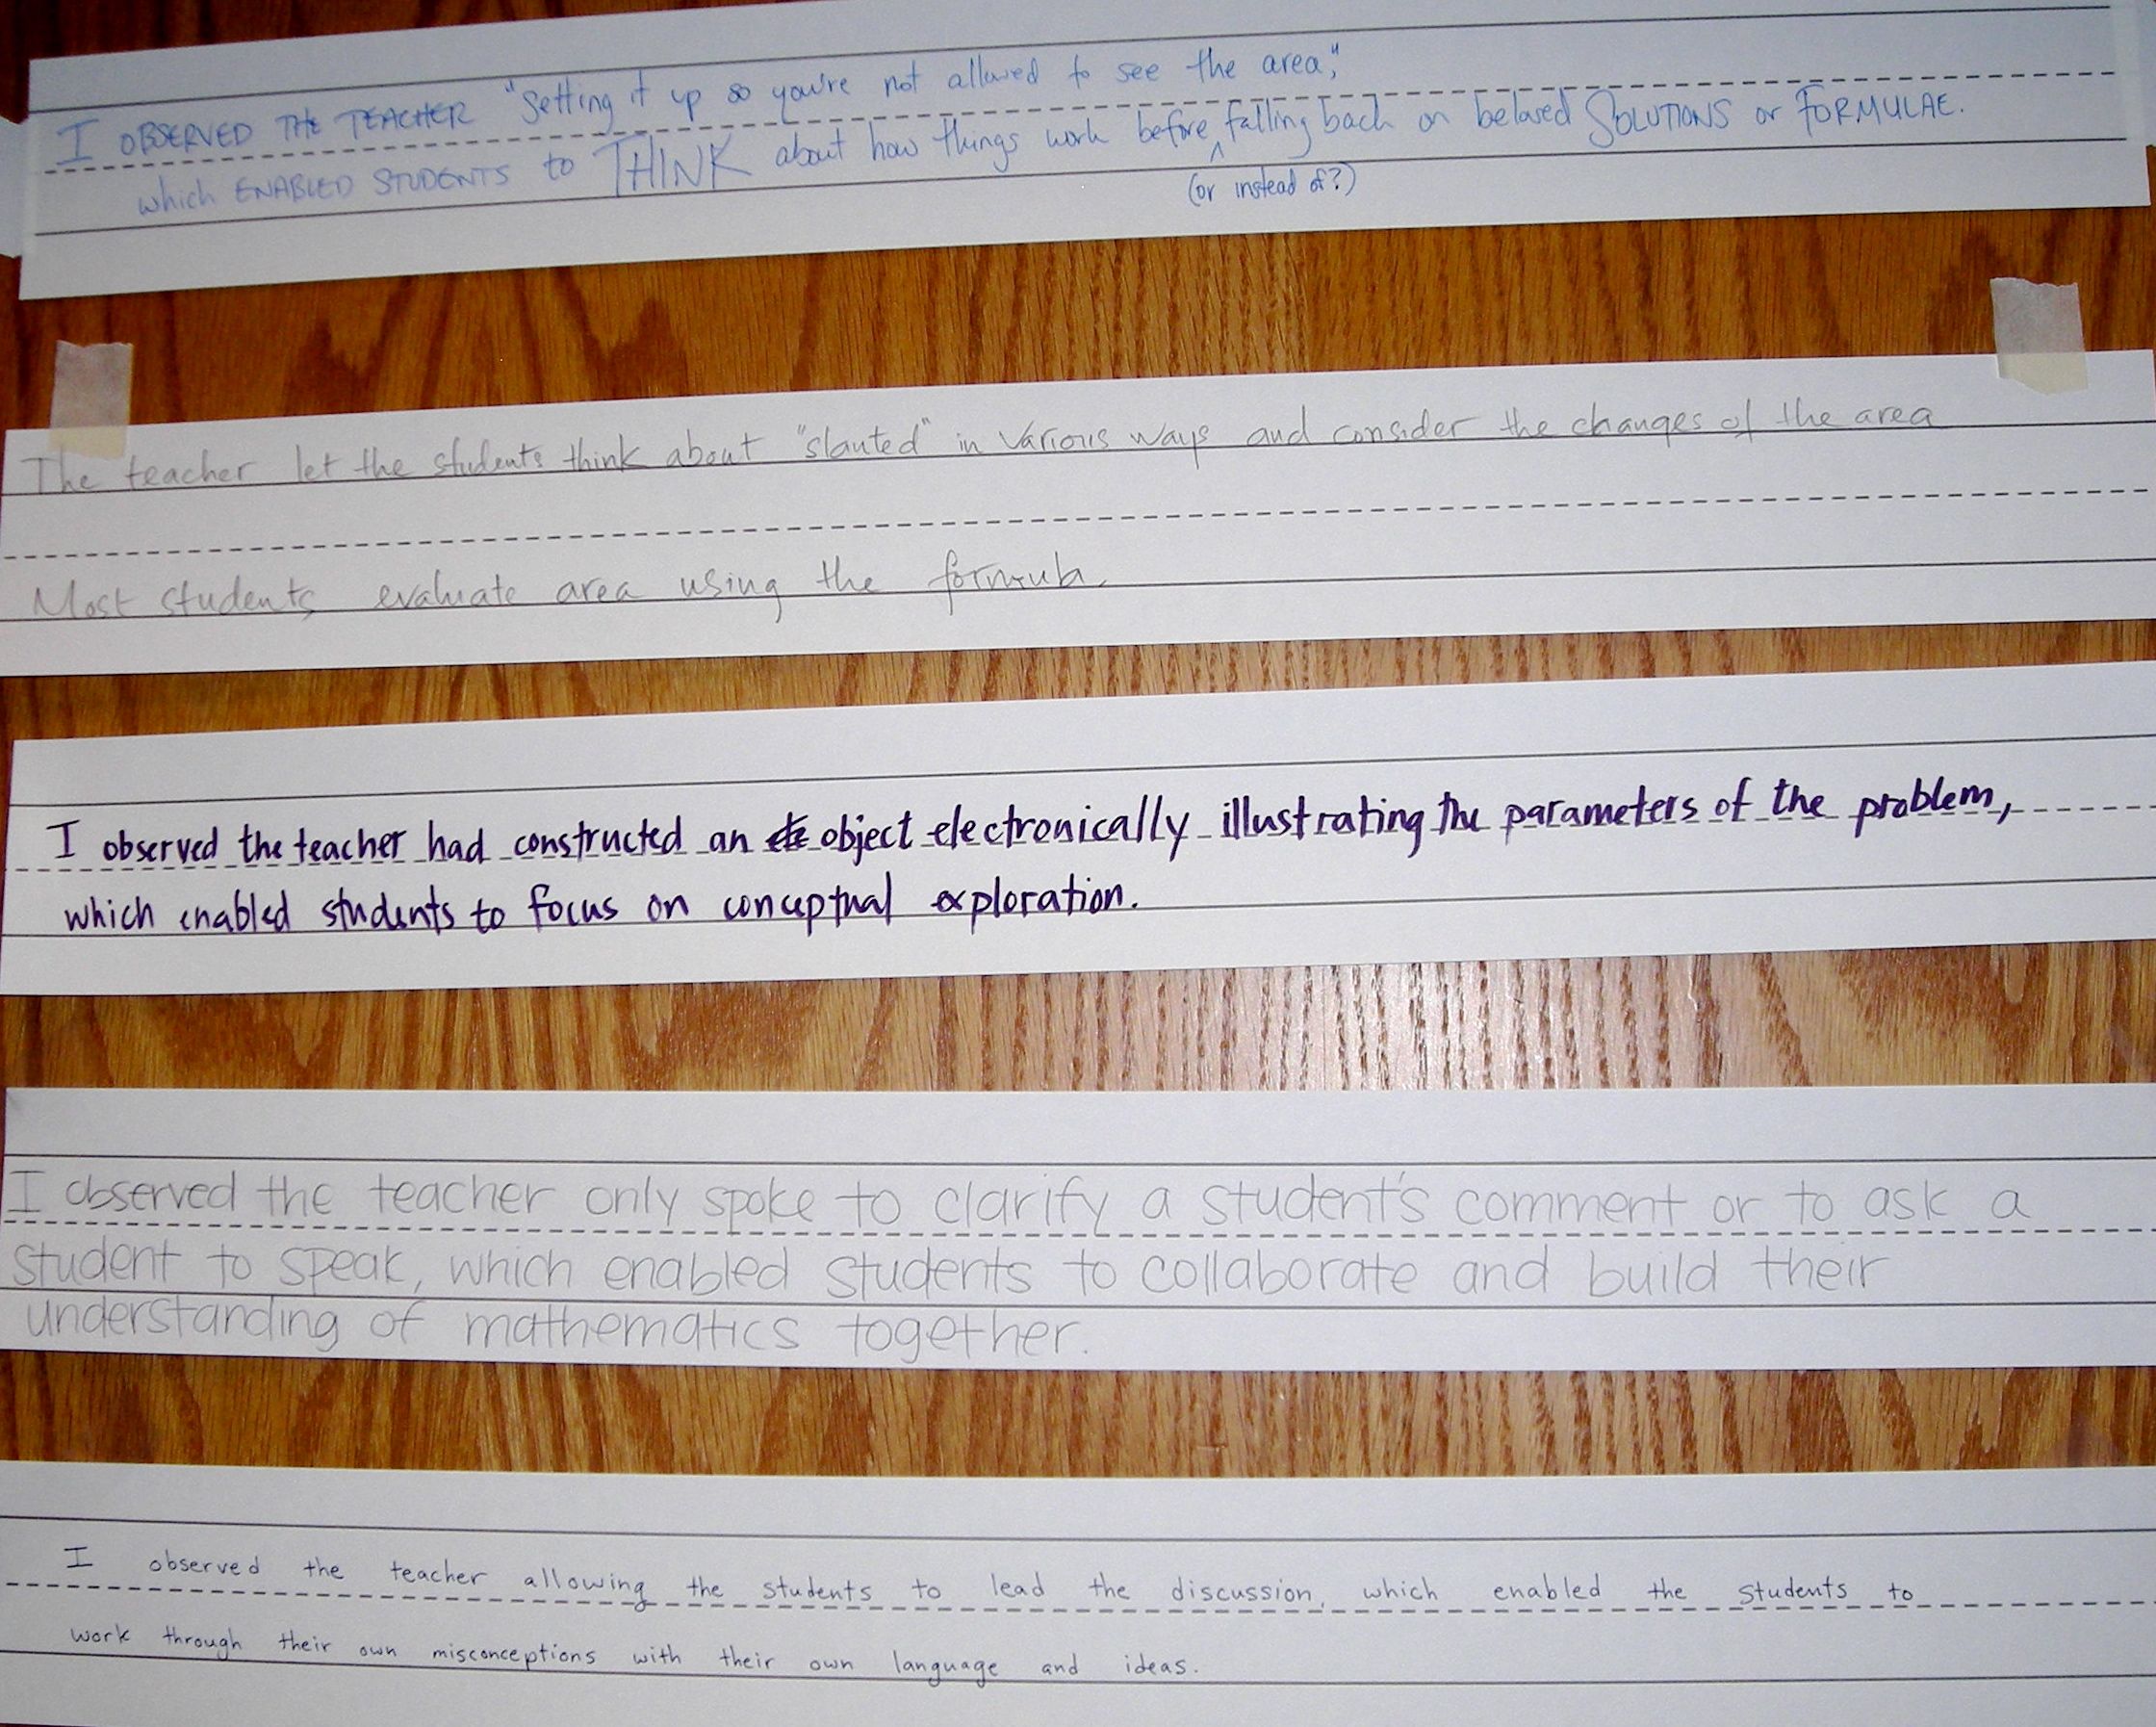 I OBSERVED THE TEACHER "Setting it up so you're not allowed to see the area,"
which ENABLED STUDENTS to THINK about how things work before ^ falling back on beloved SOLUTIONS or FORMULAE.
(or instead of?)
The teacher let the students think about "slanted" in various ways and consider the changes of the area
Most students evaluate area using the formula.
I observed the teacher had constructed an object electronically illustrating the parameters of the problem,
which enabled students to focus on conceptual exploration.
I observed the teacher only spoke to clarify a student's comment or to ask a
student to speak, which enabled students to collaborate and build their
understanding of mathematics together.
I observed the teacher allowing the students to lead the discussion, which enabled the students to
work through their own misconceptions with their own language and ideas.